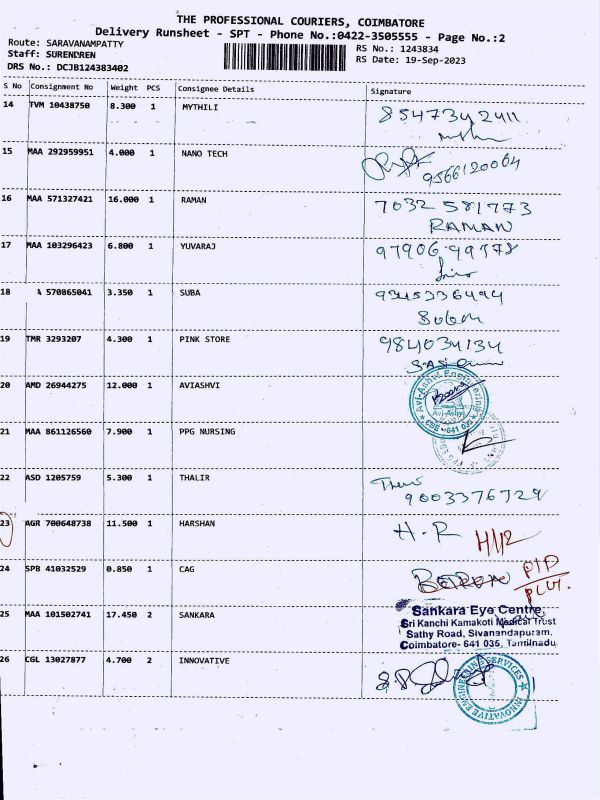 THE PROFESSIONAL COURIERS, COIMBATORE
Delivery Runsheet - SPT - Phone No.:0422-3505555 - Page No.:2
Route: SARAVANAMPATTY RS No.: 1243834
Staff: SURENDREN RS Date: 19-Sep-2023
DRS No.: DCJB124383402
S No Consignment No Weight PCS Consignee Details Signature
14 TVM 10438750 8.300 1 MYTHILI 8547342411
15 MAA 292959951 4.000 1 NANO TECH 9566120064
16 MAA 571327421 16.000 1 RAMAN 7032581773
RAMAN
17 MAA 103296423 6.800 1 YUVARAJ
18 A 570865041 3.350 1 SUBA
19 TMR 3293207 4.300 1 PINK STORE 984034134
20 AMD 26944275 12.000 1 AVIASHVI
Avi-Ashvi Engineering
CBE - 641 035
21 MAA 861126560 7.900 1 PPG NURSING
22 ASD 1205759 5.300 1 THALIR
9003376729
23 AGR 700648738 11.500 1 HARSHAN H.R H/12
24 SPB 41032529 0.850 1 CAG
25 MAA 101502741 17.450 2 SANKARA
Sankara Eye Centre,
Sri Kanchi Kamakoti Medical Trust
Sathy Road, Sivanandapuram,
Coimbatore- 641 035, Tamilnadu
26 CGL 13027877 4.700 2 INNOVATIVE
INNOVATIVE ENGINEERING SERVICES